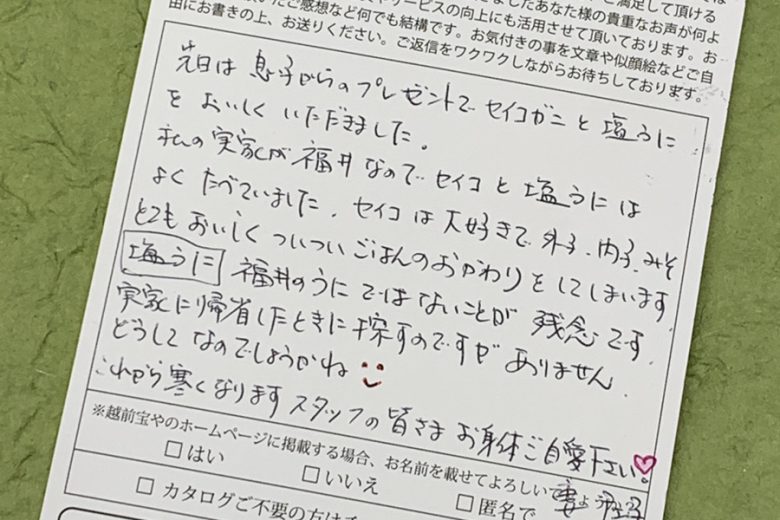 ご満足して頂ける
サービスの向上にも活用させて頂いております。お
ご感想など何でも結構です。お気付きの事を文章や似顔絵などご自
由にお書きの上、お送りください。ご返信をワクワクしながらお待ちしております。
先日は息子からのプレゼントで セイコガニと塩うに
をおいしくいただきました。
私の実家が福井なので セイコと塩うには
よくたべていました。セイコは大好きで 外子、内子、みそ
とてもおいしくついついごはんのおかわりをしてしまいます
塩うに 福井のうにではないことが残念です。
実家に帰省したときに探すのですが ありません
どうしてなのでしょうかね
これから寒くなります スタッフの皆さま お身体ご自愛下さい。
※越前宝やのホームページに掲載する場合、お名前を載せてよろしいで
□はい □いいえ □匿名で
□ カタログご不要の方は